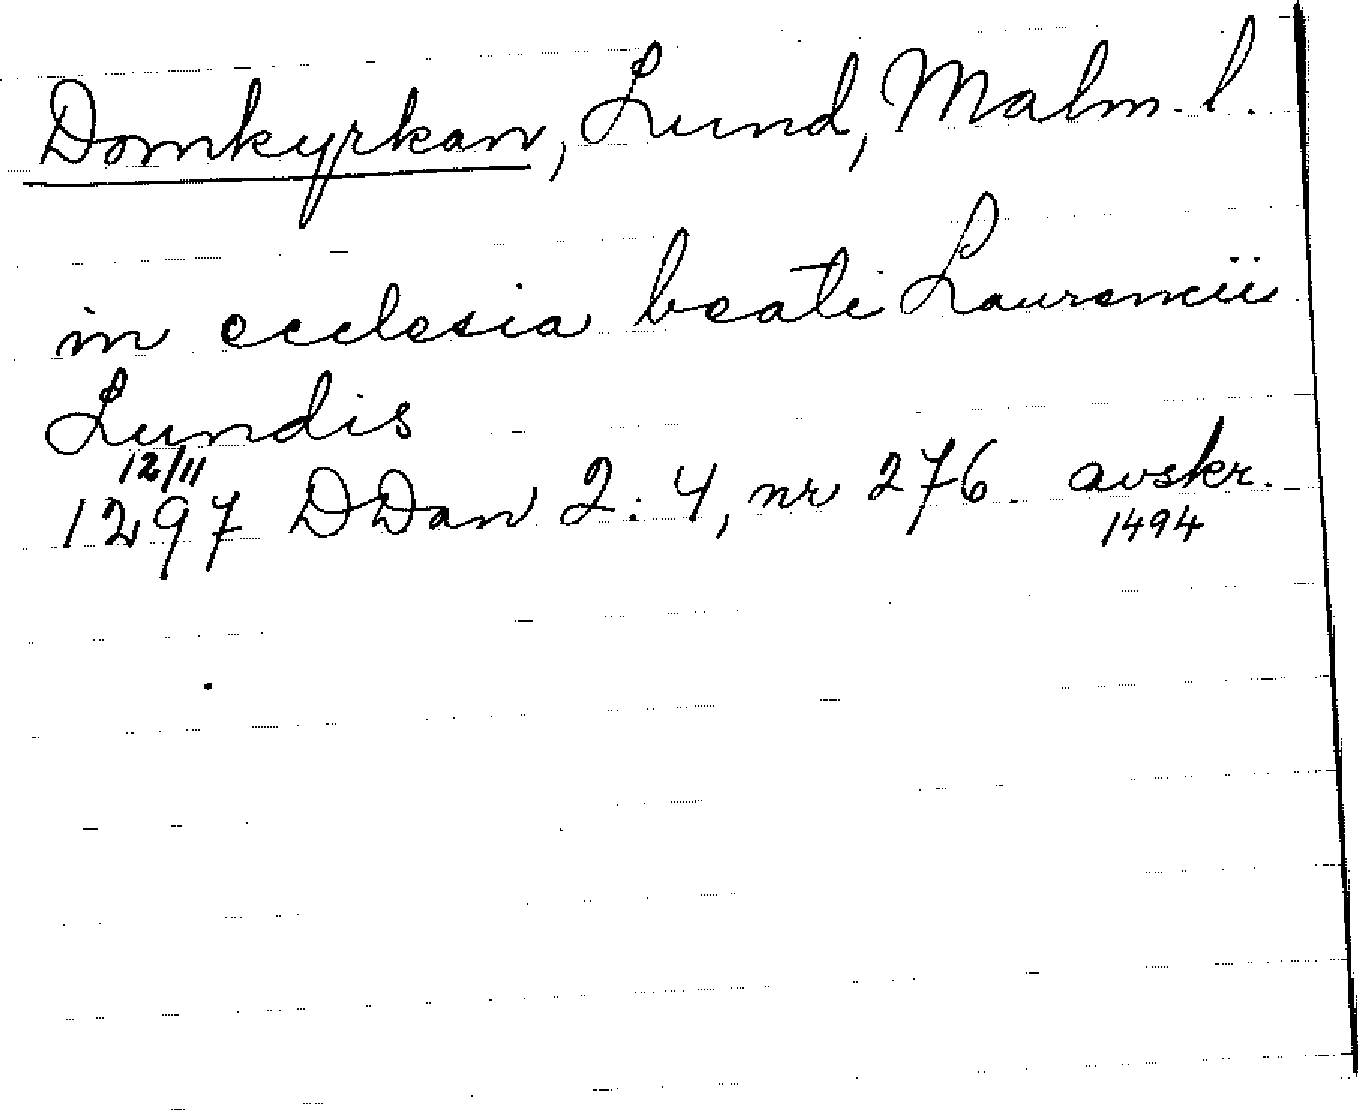 Domkyrkan, Lund, Malm. l.
in ecclesia beati Laurencii
Lundis
12/11
1297 DDan 2:4, nr 276. avskr.
1494